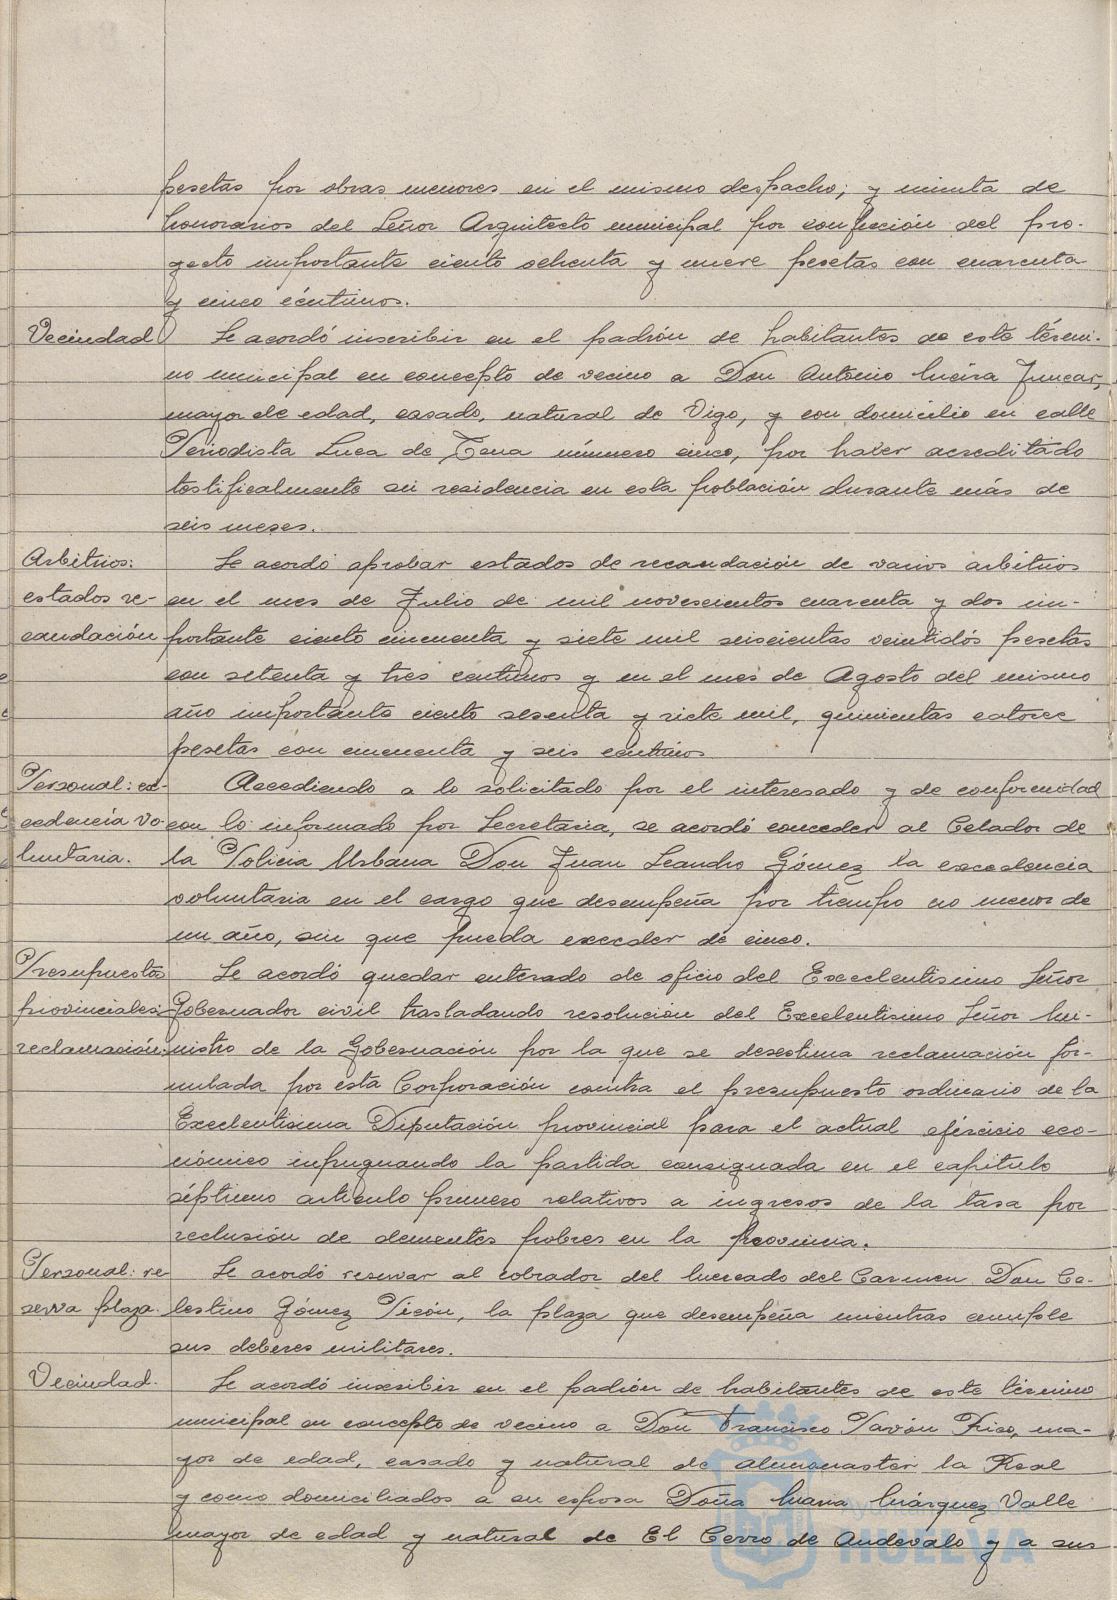 pesetas por obras menores en el mismo despacho; y minuta de
honorarios del Señor Arquitecto municipal por confección del pro-
yecto importante ciento ochenta y nueve pesetas con cuarenta
y cinco céntimos.
Vecindad
Se acordó inscribir en el padrón de habitantes de este térmi-
no municipal en concepto de vecino a Don Antonio Juncar,
mayor de edad, casado, natural de Vigo, y con domicilio en calle
Periodista Luca de Tena número cinco, por haber acreditado
testificalmente su residencia en esta población durante más de
seis meses.
Arbitrios:
estados re-
caudación
Se acordó aprobar estados de recaudación de varios arbitrios
en el mes de Julio de mil novescientos cuarenta y dos im-
portante ciento cincuenta y siete mil seiscientas veintidós pesetas
con setenta y tres centimos y en el mes de Agosto del mismo
año importante ciento sesenta y siete mil, quinientas catorce
pesetas con cincuenta y seis centimos
Personal: ex-
cedencia vo-
luntaria.
Accediendo a lo solicitado por el interesado y de conformidad
con lo informado por Secretaria, se acordó conceder al Celador de
la Policia Urbana Don Juan Leandro Gómez la excedencia
voluntaria en el cargo que desempeña por tiempo no menor de
un año, sin que pueda exceder de cinco.
Presupuestos
provinciales:
reclamación:
Se acordó quedar enterado de oficio del Excelentisimo Señor
Gobernador civil trasladando resolución del Excelentisimo Señor Mi-
nistro de la Gobernación por la que se desestima reclamación for-
mulada por esta Corporación contra el presupuesto ordinario de la
Excelentisima Diputación provincial para el actual ejercicio eco-
nómico impugnando la partida consignada en el capitulo
séptimo articulo primero relativos a ingresos de la tasa por
reclusión de dementes pobres en la provincia.
Personal: re-
serva plaza.
Se acordó reservar al cobrador del Mercado del Carmen Don Ce-
lestino Gómez Picón, la plaza que desempeña mientras cumple
sus deberes militares.
Vecindad.
Se acordó inscribir en el padrón de habitantes de este término
municipal en concepto de vecino a Don Francisco Pavón Rico, ma-
yor de edad, casado y natural de Almonaster la Real
y como domiciliados a su esposa Doña Maria Márquez Valle
mayor de edad y natural de El Cerro de Andevalo y a sus
Ayuntamiento de
HUELVA